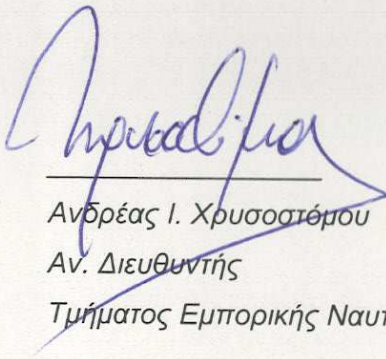 Ανδρέας Ι. Χρυσοστόμου
Αν. Διευθυντής
Τμήματος Εμπορικής Ναυτ